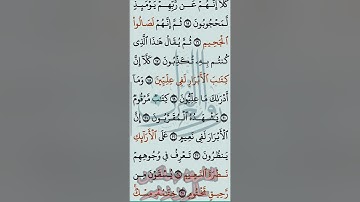 كَلَّآ إِنَّهُمْ عَن رَّبِّهِمْ يَوْمَئِذٍ
لَّمَحْجُوبُونَ ۝ ثُمَّ إِنَّهُمْ لَصَالُوا۟
ٱلْجَحِيمِ ۝ ثُمَّ يُقَالُ هَٰذَا ٱلَّذِى
كُنتُم بِهِۦ تُكَذِّبُونَ ۝ كَلَّآ إِنَّ
كِتَٰبَ ٱلْأَبْرَارِ لَفِى عِلِّيِّينَ ۝ وَمَآ
أَدْرَىٰكَ مَا عِلِّيُّونَ ۝ كِتَٰبٌ مَّرْقُومٌ
۝ يَشْهَدُهُ ٱلْمُقَرَّبُونَ ۝ إِنَّ
ٱلْأَبْرَارَ لَفِى نَعِيمٍ ۝ عَلَى ٱلْأَرَآئِكِ
يَنظُرُونَ ۝ تَعْرِفُ فِى وُجُوهِهِمْ
نَضْرَةَ ٱلنَّعِيمِ ۝ يُسْقَوْنَ مِن
رَّحِيقٍ مَّخْتُومٍ ۝ خِتَٰمُهُۥ مِسْكٌ